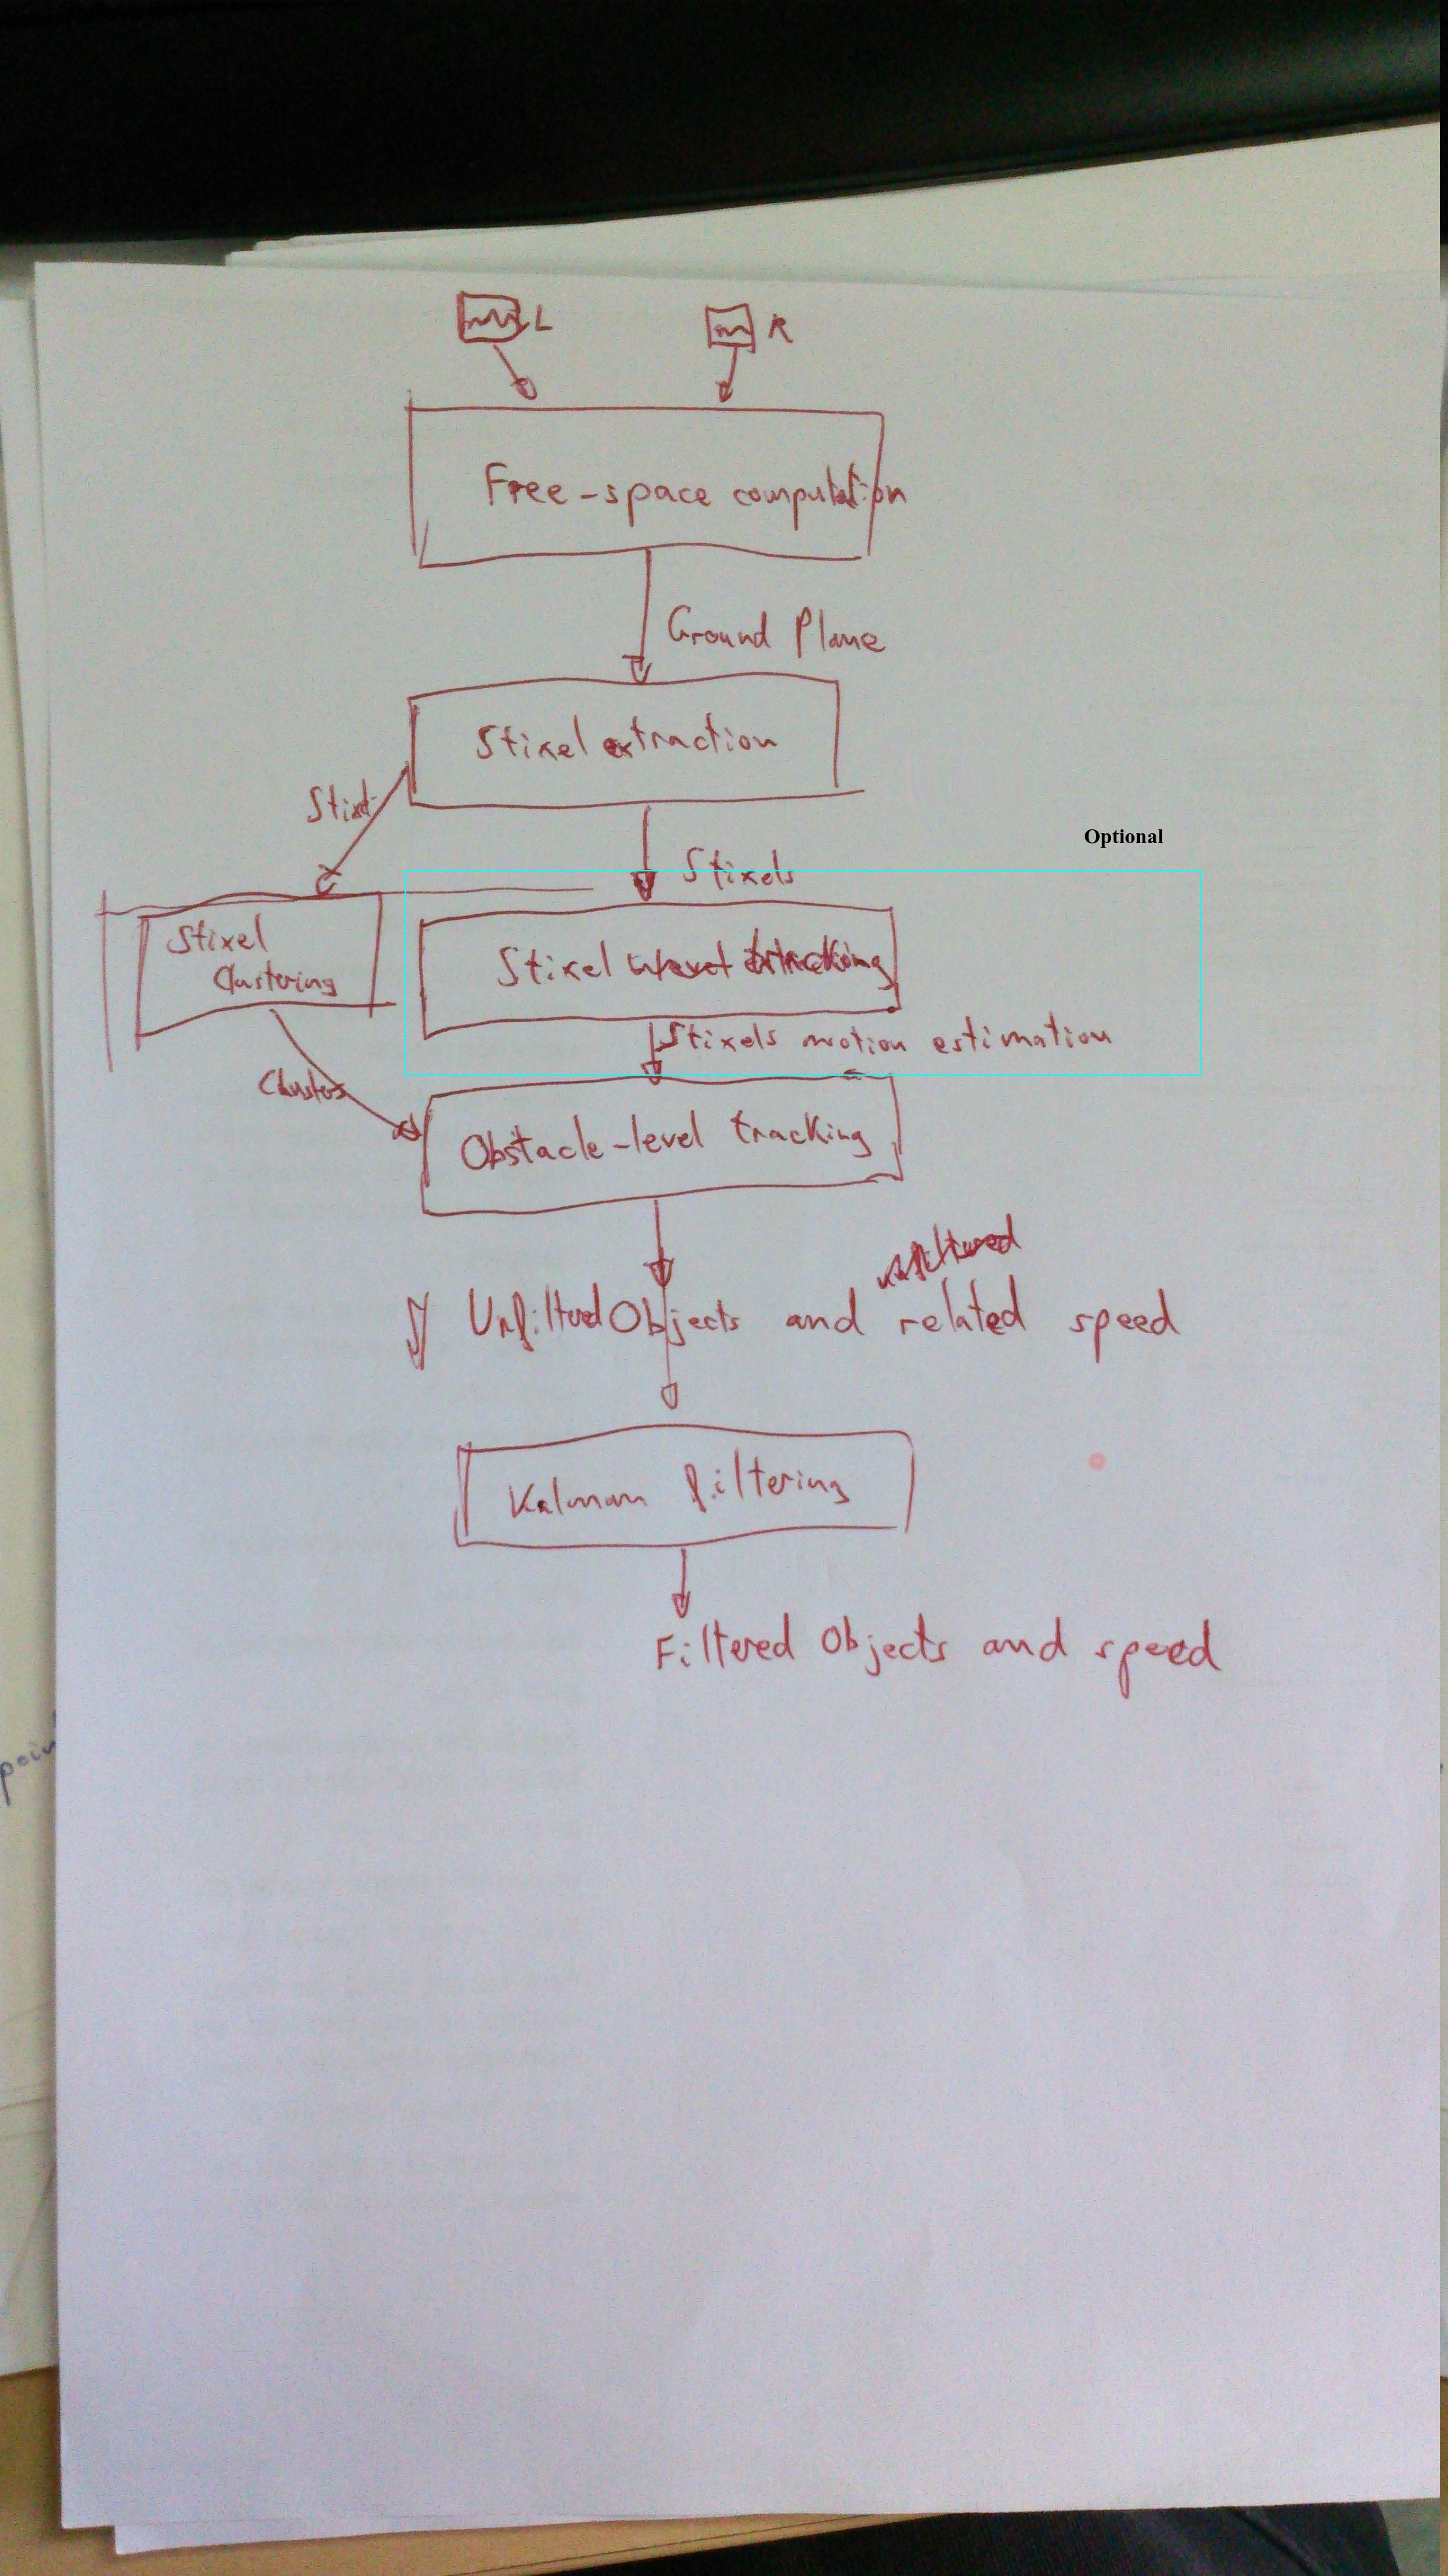 L
R
Free-space computation
Ground Plane
Stixel extraction
Optional
Stixels
Stixel
Clustering
Stixel tracking
Stixels motion estimation
Clusters
Obstacle-level tracking
Unfiltered Objects and related speed
Kalman filtering
Filtered Objects and speed
poin